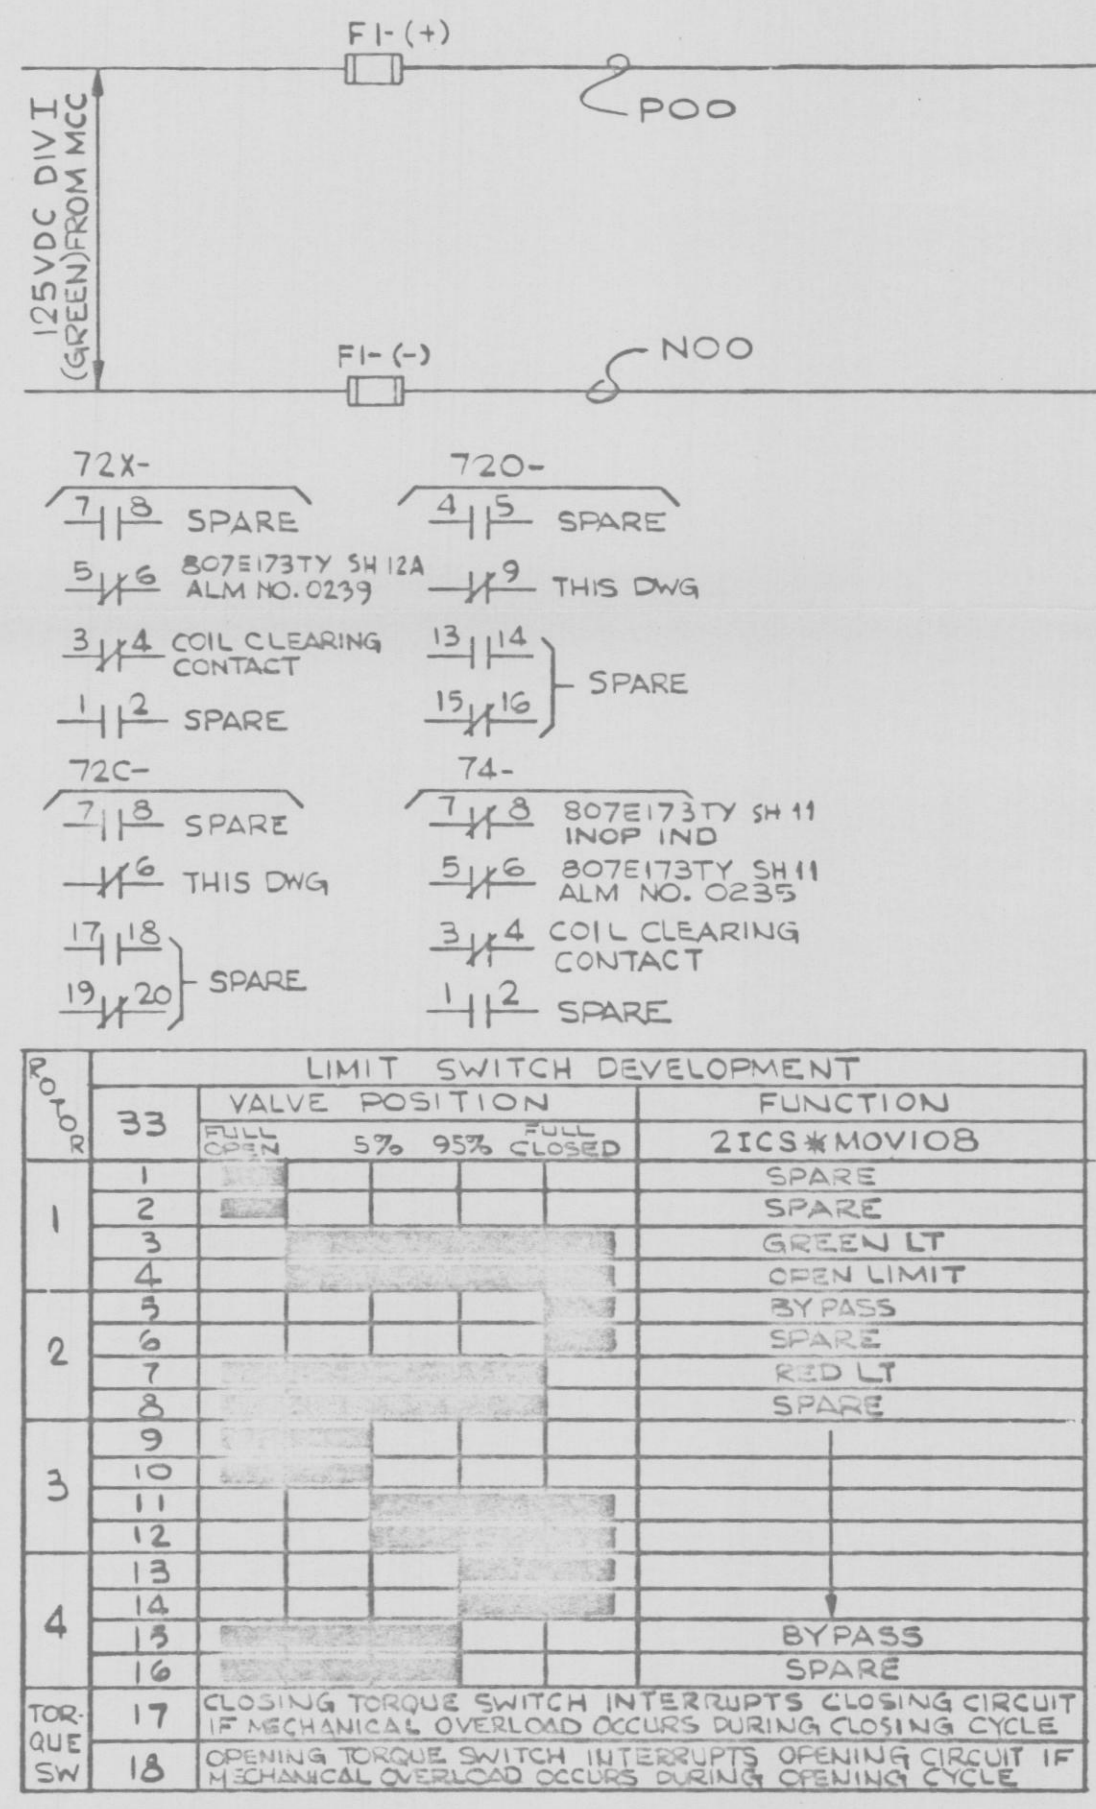 F1-(+)
P00
125VDC DIV I
(GREEN)FROM MCC
F1-(-)
N00
72X-
7 8 SPARE
5 6 807E173TY SH 12A
ALM NO. 0239
3 4 COIL CLEARING
CONTACT
1 2 SPARE
72O-
4 5 SPARE
9 THIS DWG
13 14
SPARE
15 16
72C-
7 8 SPARE
6 THIS DWG
17 18
SPARE
19 20
74-
7 8 807E173TY SH 11
INOP IND
5 6 807E173TY SH 11
ALM NO. 0235
3 4 COIL CLEARING
CONTACT
1 2 SPARE
ROTOR
LIMIT SWITCH DEVELOPMENT
33 VALVE POSITION FUNCTION
FULL OPEN 5% 95% FULL CLOSED 2ICS*MOV108
1
1 SPARE
2 SPARE
3 GREEN LT
4 OPEN LIMIT
2
5 BYPASS
6 SPARE
7 RED LT
8 SPARE
3
9
10
11
12
4
13
14
15 BYPASS
16 SPARE
TOR-
QUE
SW
17 CLOSING TORQUE SWITCH INTERRUPTS CLOSING CIRCUIT
IF MECHANICAL OVERLOAD OCCURS DURING CLOSING CYCLE
18 OPENING TORQUE SWITCH INTERRUPTS OPENING CIRCUIT IF
MECHANICAL OVERLOAD OCCURS DURING OPENING CYCLE